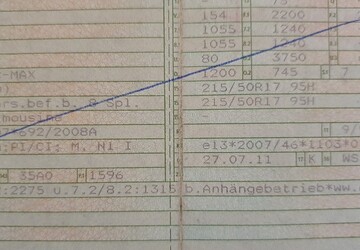 154 2200
1055 1240
1055 1240
80 3750
-MAX 1200 745 7
215/50R17 95H
ors.bef.b. 8 Spl. 215/50R17 95H
mousine -
692/2008A 9/
:PI/CI; M, N1 I e13*2007/46*1103*0
27.07.11 K WS
35A0 1596
:2275 u.7.2/8.2:1315 b.Anhängebetrieb*ww.